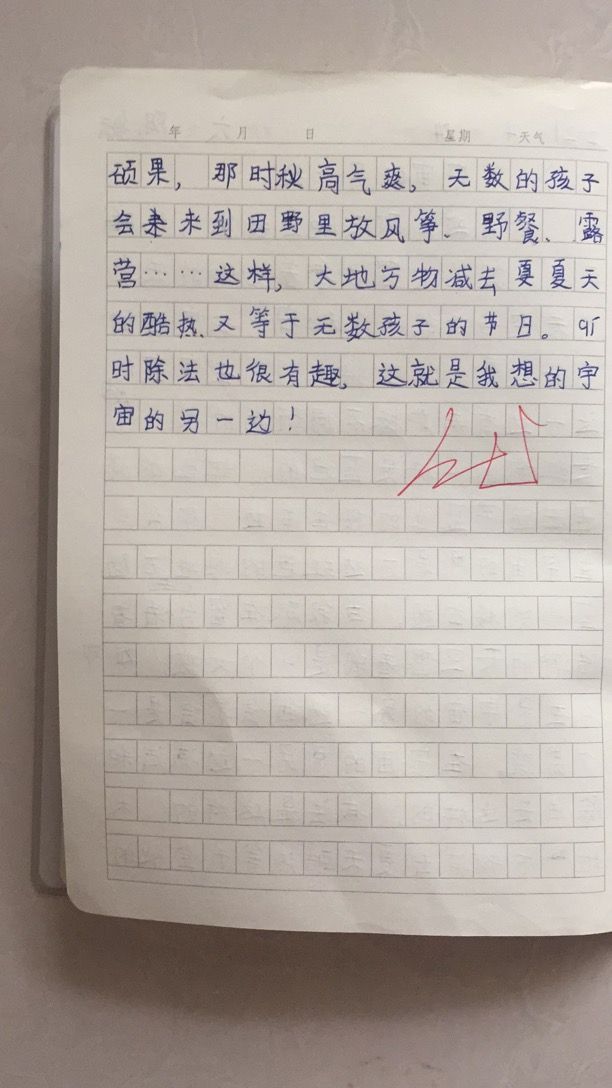 年 月 日 星期 天气
硕果，那时秋高气爽，无数的孩子
会来来到田野里放风筝、野餐、露
营……这样，大地万物减去夏夏天
的酷热又等于无数孩子的节日。
时除法也很有趣，这就是我想的宇
宙的另一边！